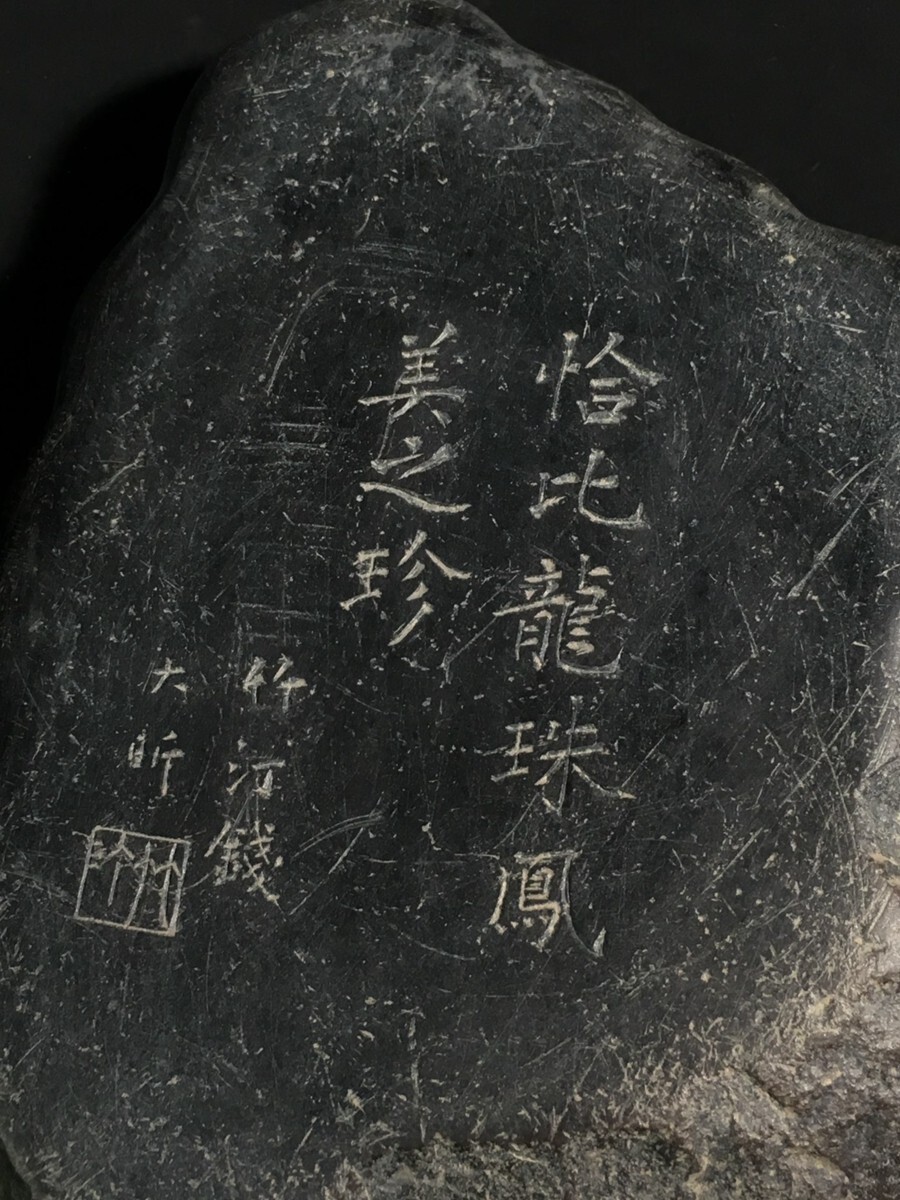 恰比龍珠鳳
美之珍
竹汀錢
大昕